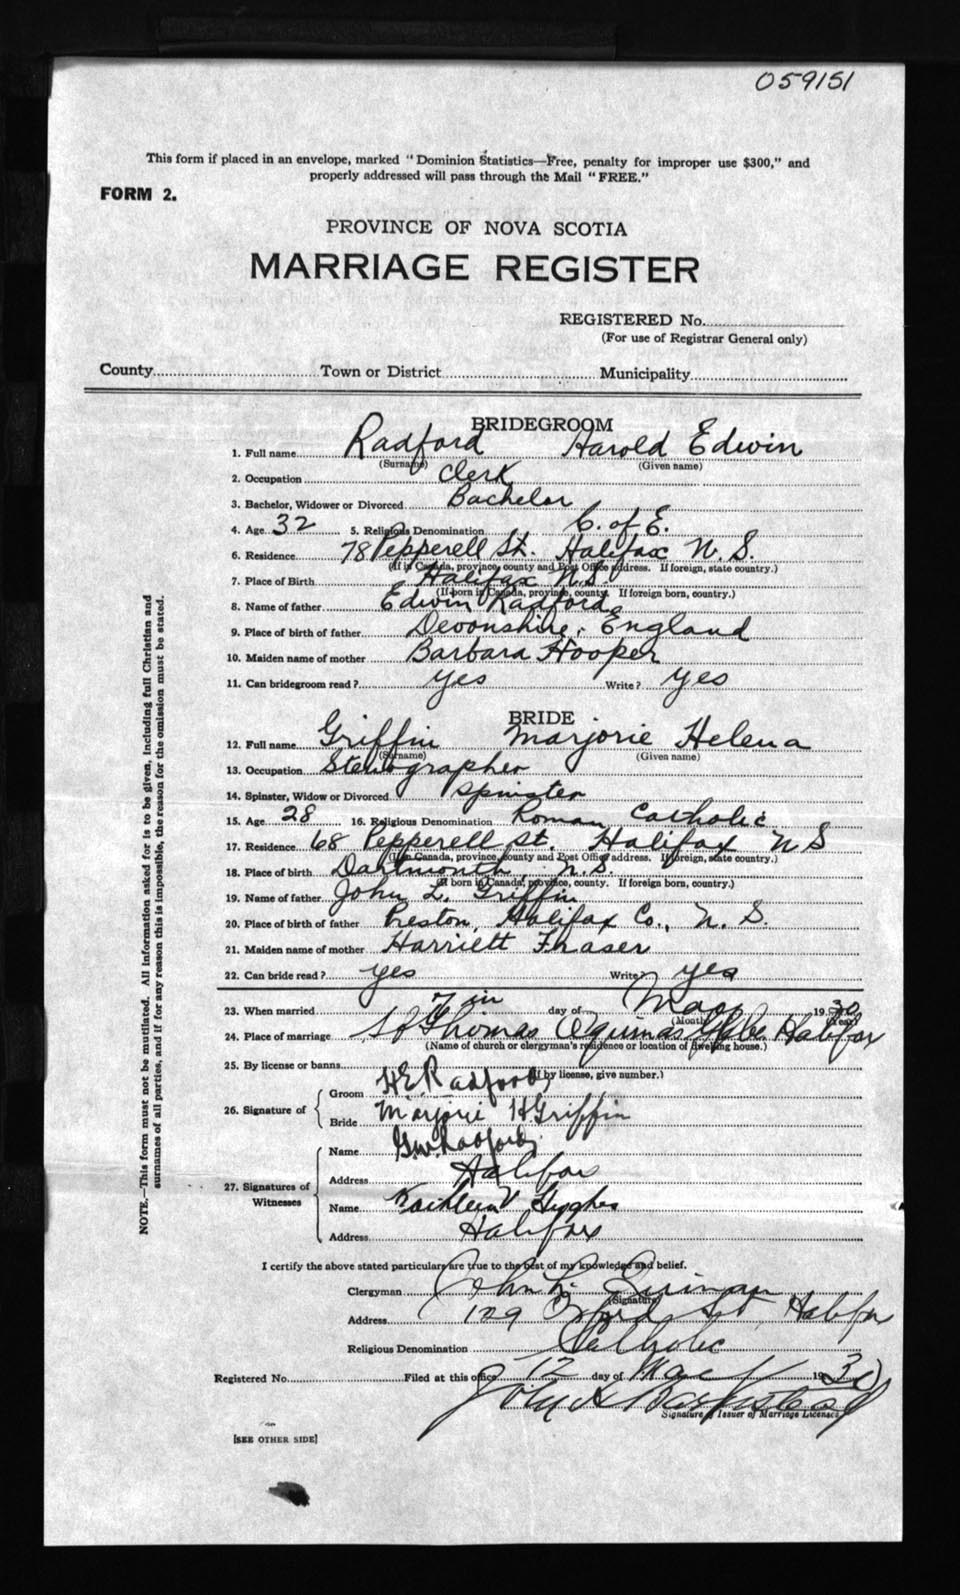 059151
This form if placed in an envelope, marked "Dominion Statistics—Free, penalty for improper use $300," and
properly addressed will pass through the Mail "FREE."
FORM 2.
PROVINCE OF NOVA SCOTIA
MARRIAGE REGISTER
REGISTERED No.
(For use of Registrar General only)
County Town or District Municipality
BRIDEGROOM
1. Full name Radford Harold Edwin
(Surname) (Given name)
2. Occupation Clerk
3. Bachelor, Widower or Divorced Bachelor
4. Age 32 5. Religious Denomination C. of E.
6. Residence 78 Pepperell St. Halifax N. S.
(If in Canada, province, county and Post Office address. If foreign, state country.)
7. Place of Birth Halifax N.S.
(If born in Canada, province, county. If foreign born, country.)
8. Name of father Edwin Radford
9. Place of birth of father Devonshire, England
10. Maiden name of mother Barbara Hooper
11. Can bridegroom read? yes Write? yes
BRIDE
12. Full name Griffin Marjorie Helena
(Surname) (Given name)
13. Occupation Stenographer
14. Spinster, Widow or Divorced spinster
15. Age 28 16. Religious Denomination Roman Catholic
17. Residence 68 Pepperell St. Halifax N S
(If in Canada, province, county and Post Office address. If foreign, state country.)
18. Place of birth Dartmouth, N.S.
(If born in Canada, province, county. If foreign born, country.)
19. Name of father John L. Griffin
20. Place of birth of father Preston, Halifax Co., N. S.
21. Maiden name of mother Harriett Fraser
22. Can bride read? yes Write? yes
23. When married 7 day of May 1930
(Month) (Year)
24. Place of marriage St Thomas Aquinas Glebe Halifax
(Name of church or clergyman's residence or location of dwelling house.)
25. By license or banns
(If by license, give number.)
26. Signature of
Groom H E Radford
Bride Marjorie H Griffin
27. Signatures of Witnesses
Name G.W. Radford
Address Halifax
Name Kathleen V Hughes
Address Halifax
I certify the above stated particulars are true to the best of my knowledge and belief.
Clergyman John L. Quinan
(Signature)
Address 129 Oxford St Halifax
Religious Denomination Catholic
Registered No. Filed at this office 12 day of May 1930
John A Barnstead
Signature of Issuer of Marriage Licenses
[SEE OTHER SIDE]
NOTE.—This form must not be mutilated. All information asked for is to be given, including full Christian and
surnames of all parties, and if for any reason this is impossible, the reason for the omission must be stated.